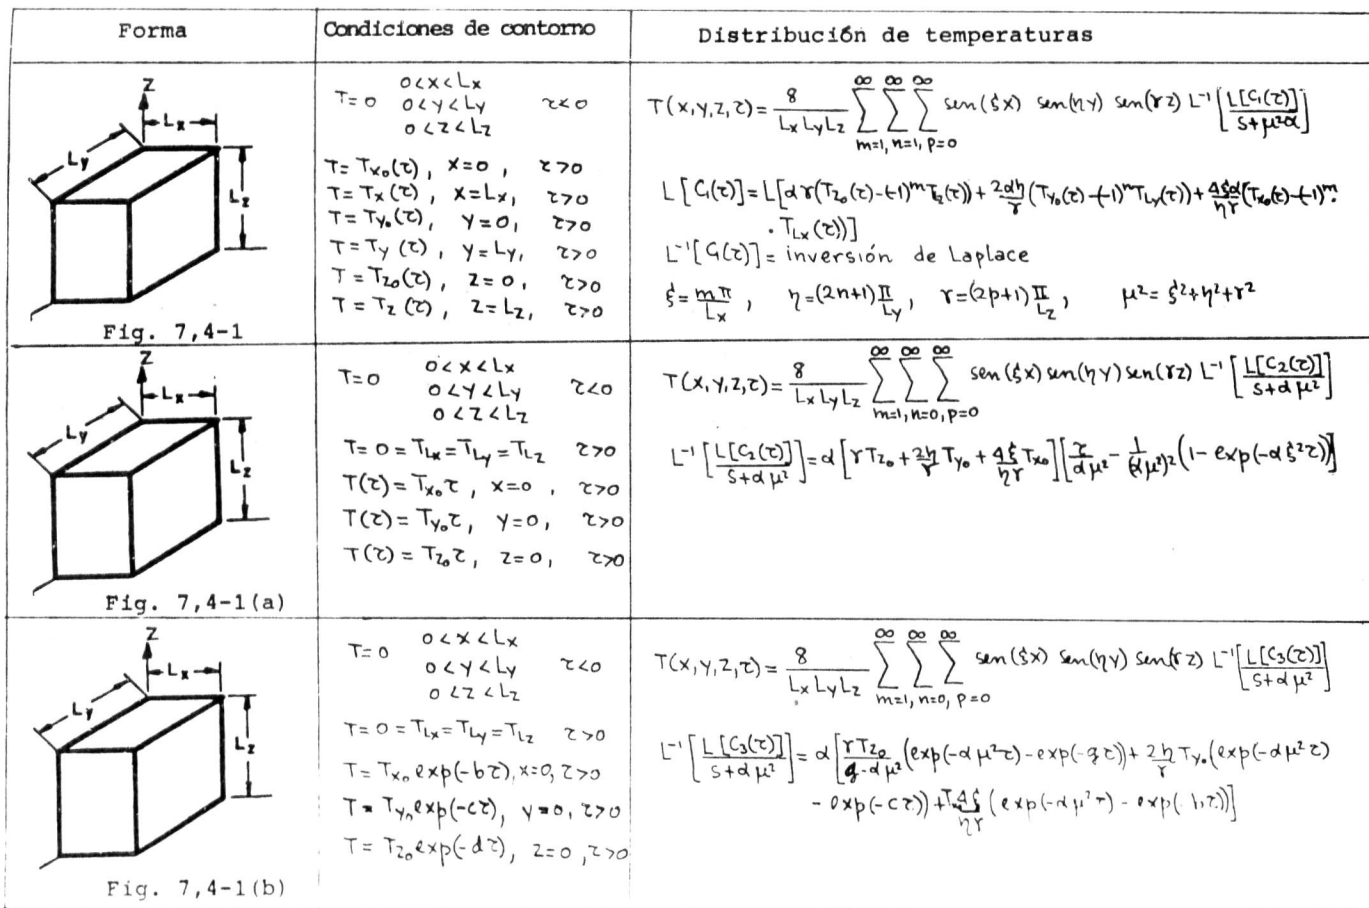 Forma
Condiciones de contorno
Distribución de temperaturas
Z
Lx
Ly
Lz
Fig. 7,4-1
T=0
0<x<Lx
0<y<Ly τ<0
0<z<Lz
T=Tx₀(τ), x=0, τ>0
T=Tx(τ), x=Lx, τ>0
T=Ty₀(τ), y=0, τ>0
T=Ty(τ), y=Ly, τ>0
T=Tz₀(τ), z=0, τ>0
T=Tz(τ), z=Lz, τ>0
T(x,y,z,τ)= 8/(Lx Ly Lz) ∞∑ ∞∑ ∞∑ m=1, n=1, p=0 sen(ξx) sen(ηy) sen(γz) L⁻¹[L[C₁(τ)]/(s+μ²α)]
L[C₁(τ)]=L[αγ(Tz₀(τ)-(-1)ᵐTz(τ))+ 2αη/γ (Ty₀(τ)-(-1)ᵐTLy(τ))+ 4ξα/ηγ (Tx₀(τ)-(-1)ᵐ·
·TLx(τ))]
L⁻¹[C₁(τ)]= inversión de Laplace
ξ= mπ/Lx, η=(2n+1)π/Ly, γ=(2p+1)π/Lz, μ²=ξ²+η²+γ²
Z
Lx
Ly
Lz
Fig. 7,4-1(a)
T=0
0<x<Lx
0<y<Ly τ<0
0<z<Lz
T=0=TLx=TLy=TLz τ>0
T(τ)=Tx₀τ, x=0, τ>0
T(τ)=Ty₀τ, y=0, τ>0
T(τ)=Tz₀τ, z=0, τ>0
T(x,y,z,τ)= 8/(Lx Ly Lz) ∞∑ ∞∑ ∞∑ m=1, n=0, p=0 sen(ξx) sen(ηy) sen(γz) L⁻¹[L[C₂(τ)]/(s+αμ²)]
L⁻¹[L[C₂(τ)]/(s+αμ²)]=α[γTz₀+ 2η/γ Ty₀+ 4ξ/ηγ Tx₀][τ/αμ² - 1/(αμ²)² (1-exp(-αξ²τ))]
Z
Lx
Ly
Lz
Fig. 7,4-1(b)
T=0
0<x<Lx
0<y<Ly τ<0
0<z<Lz
T=0=TLx=TLy=TLz τ>0
T=Tx₀ exp(-bτ), x=0, τ>0
T=Ty₀ exp(-cτ), y=0, τ>0
T=Tz₀ exp(-dτ), z=0, τ>0
T(x,y,z,τ)= 8/(Lx Ly Lz) ∞∑ ∞∑ ∞∑ m=1, n=0, p=0 sen(ξx) sen(ηy) sen(γz) L⁻¹[L[C₃(τ)]/(s+αμ²)]
L⁻¹[L[C₃(τ)]/(s+αμ²)]=α[γTz₀/(g-αμ²) (exp(-αμ²τ)-exp(-gτ))+ 2η/γ Ty₀(exp(-αμ²τ)
-exp(-cτ))+ 4ξ/ηγ (exp(-αμ²τ)-exp(